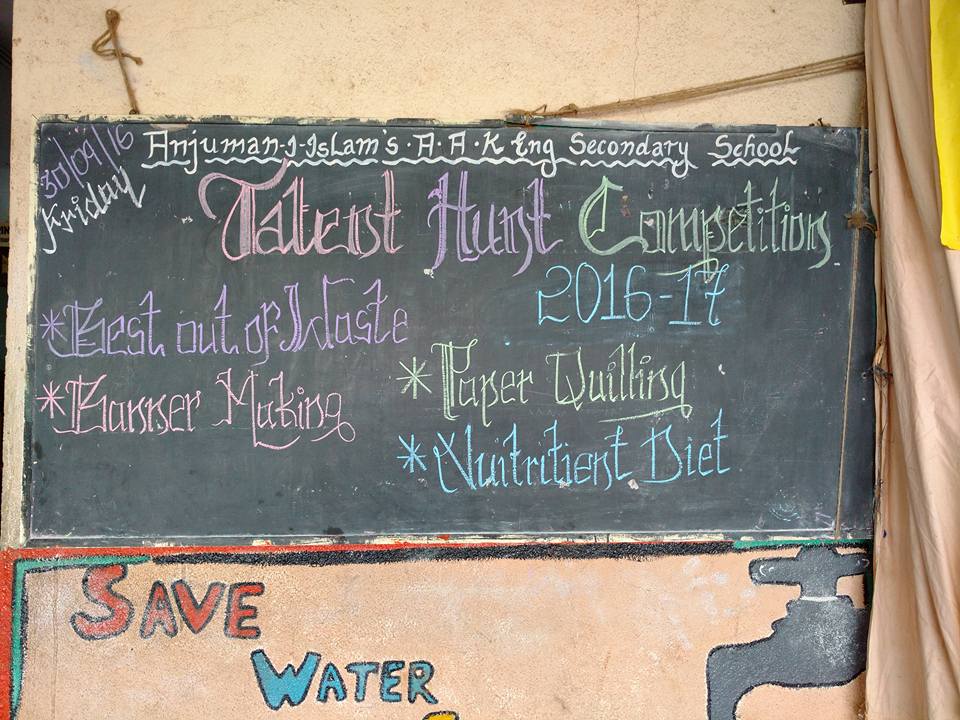 30/09/16
Friday
Anjuman-I-Islam's.A.A.K Eng Secondary School
Talent Hunt Competition
2016-17
*Best out of Waste
*Banner Making
*Paper Quilling
*Nuitritient Diet
SAVE
WATER